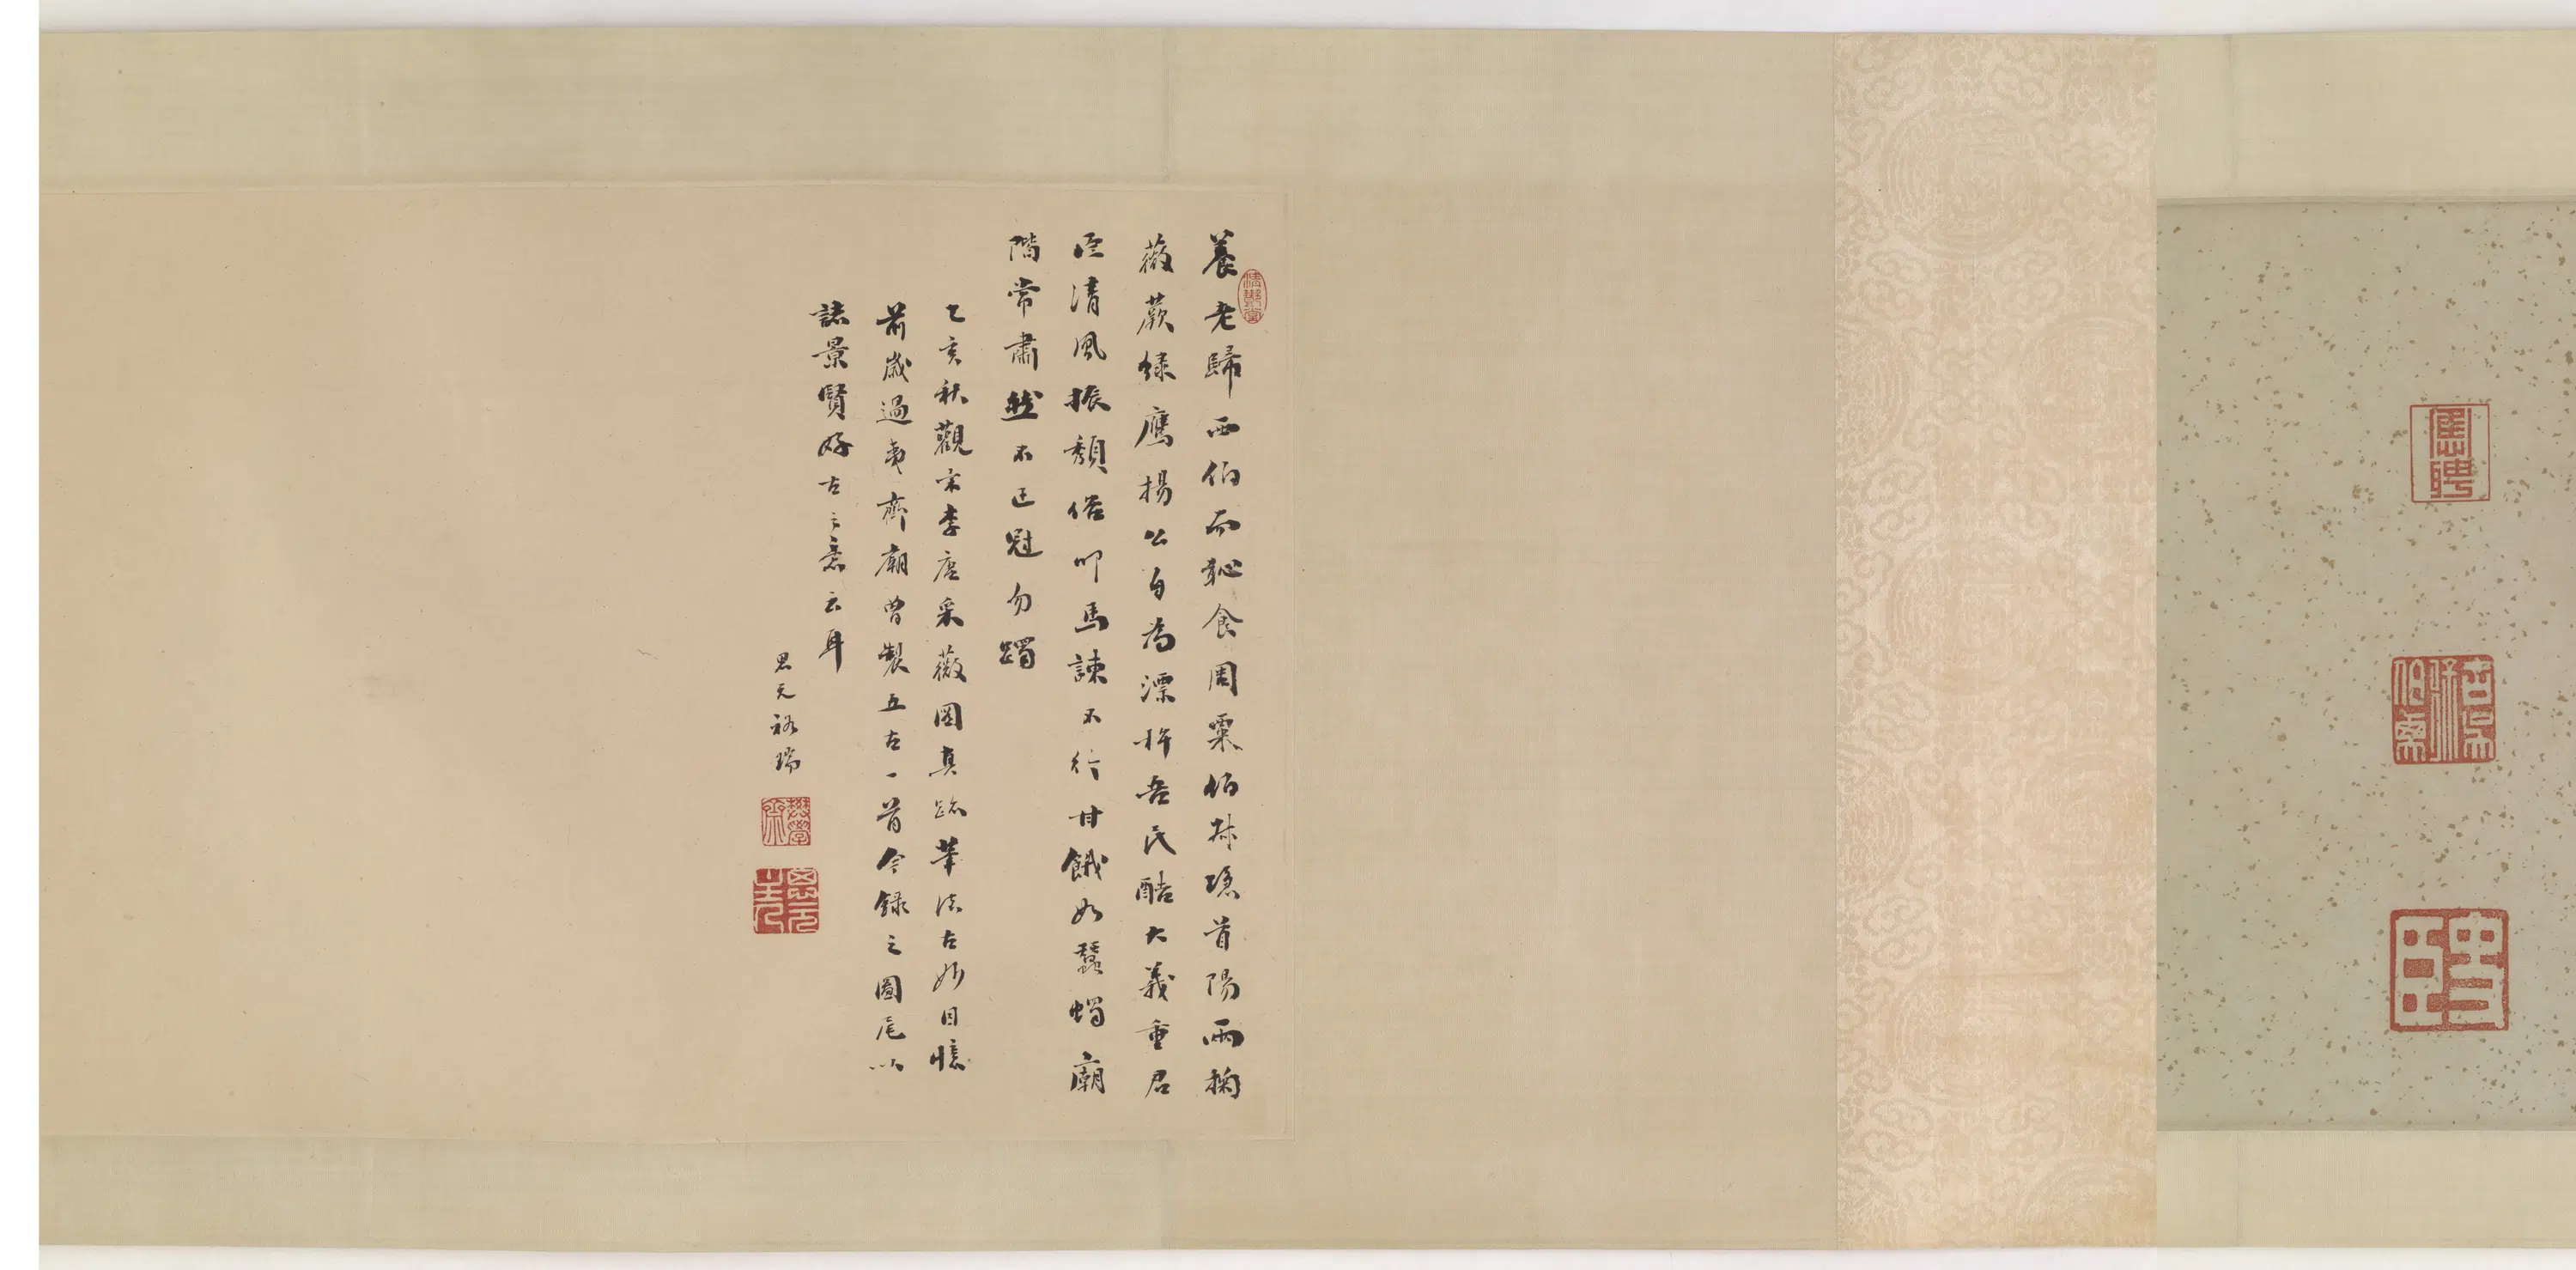 養老歸西伯而恥食周粟伯叔隱首陽兩掬
薇蕨綠鷹揚公自為漂杵吾民酷大義重君
臣清風振頹俗叩馬諫不行甘餓如蠶蠋廟
階常肅然不正冠勿躅
乙亥秋觀宋李唐采薇圖真跡筆法古妙因憶
前歲過夷齊廟曾製五古一首今錄之圖尾以
誌景賢好古之意云耳
思元裕瑞
樊學齋
思元主人